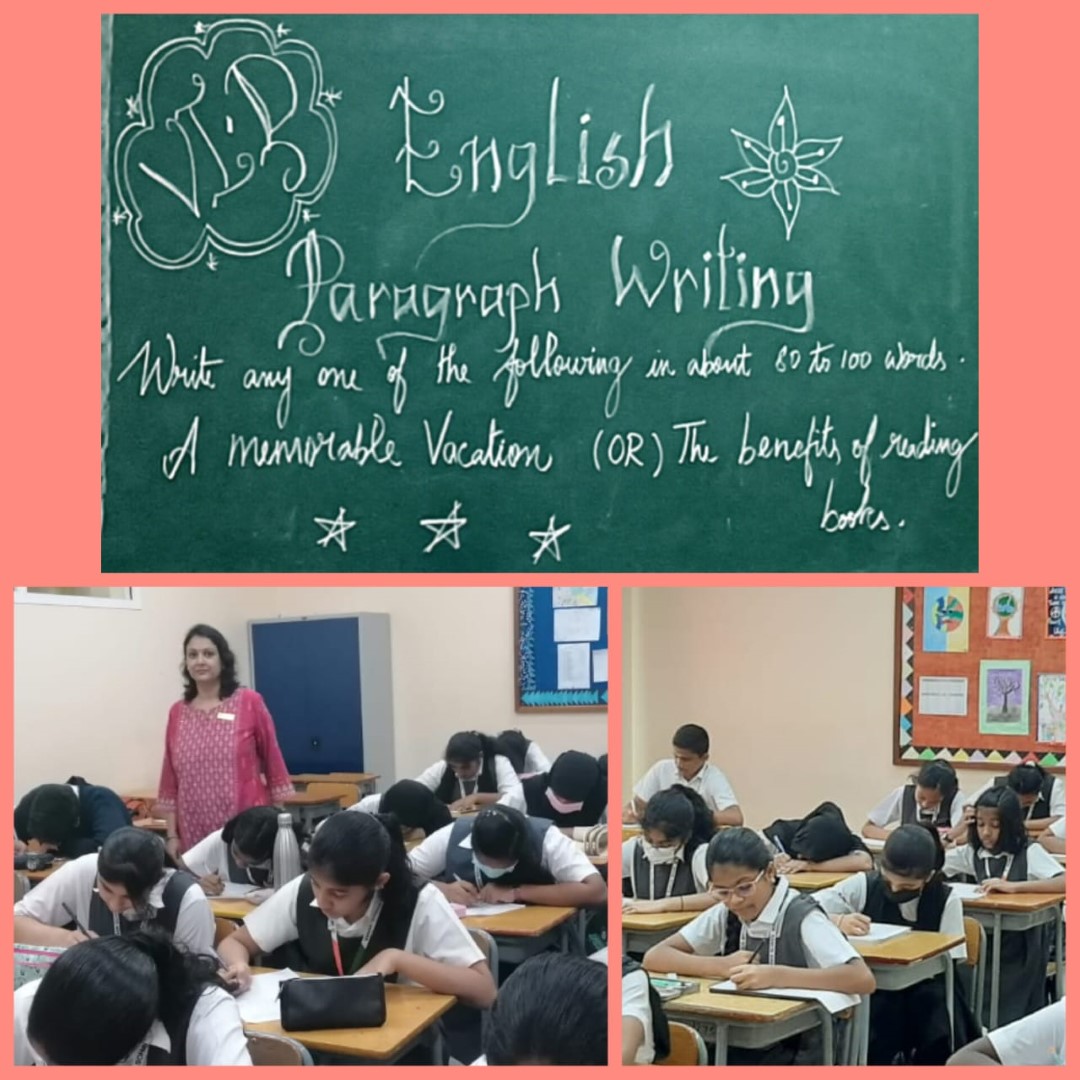 English
Paragraph Writing
Write any one of the following in about 80 to 100 words.
A memorable Vacation (OR) The benefits of reading
books.